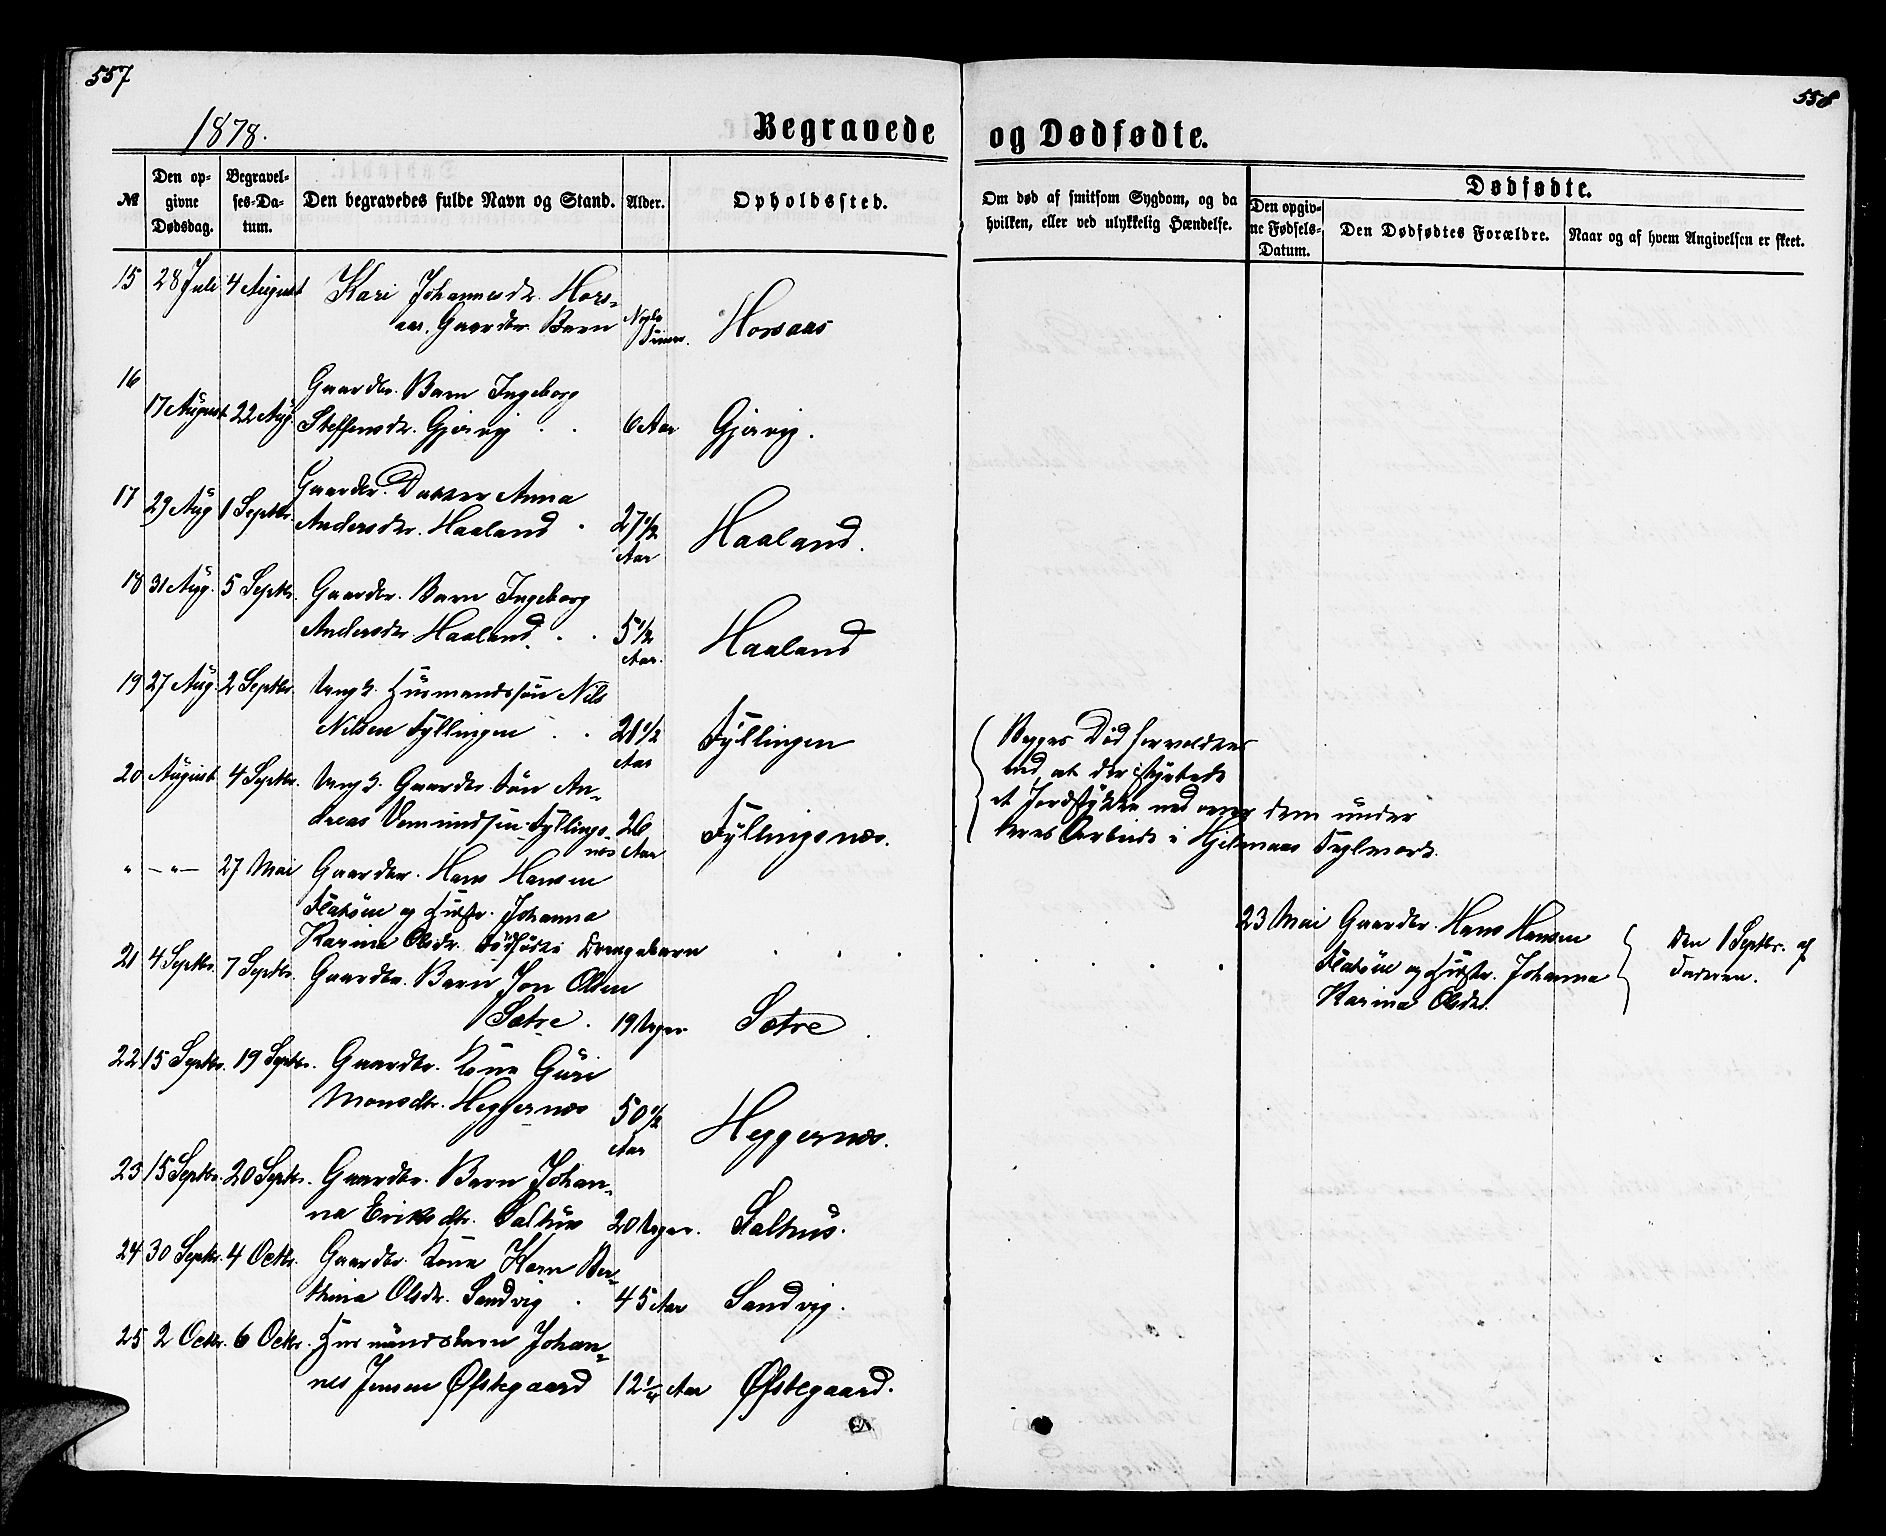 557
558
1878.
Begravede og Dødfødte.
№
Den opgivne Dødsdag.
Begravelses-Datum.
Den begravedes fulde Navn og Stand.
Alder.
Opholdssted.
Om død af smitsom Sygdom, og da
hvilken, eller ved ulykkelig Hændelse.
Dødfødte.
Den opgivne Fødsels-Datum.
Den Dødfødtes Forældre.
Naar og af hvem Angivelsen er skeet.
15 28 Juli 4 August Kari Johannesdr. Hors-
aas, Gaardbr. Barn Nogle Timer. Horsaas
16 17 August 22 Aug. Gaardbr. Barn Ingeborg
Steffensdr. Gjervig 6 Aar Gjervig.
17 29 Aug 1 Septbr. Gaardbr. Datter Anna
Andersdr. Haaland 27 1/2 Aar Haaland.
18 31 Aug. 5 Septbr. Gaardbr. Barn Ingeborg
Andersdr Haaland. 5 1/2 Aar. Haaland
19 27 Aug. 2 Septbr. Ungk. Huusmandssøn Nils
Nilsen Fyllingen 21 1/2 Aar Fyllingen
20 August 4 Septbr. Ungk. Gaardbr. Søn An-
dreas Vemundsen Fyllings-
næs 26 Aar Fyllingsnæs.
Begges Død forvoldtes
ved, at der styrtede
et Jordstykke ned over dem under
deres Arbeide i Hjelmaas Teglverk.
" — " — 27 Mai Gaardbr. Hans Hansen
Flatøen og Hustr. Johanna
Karina Olsdr. Dødfødte Drengebarn
23 Mai Gaardbr. Hans Hansen
Flatøen og Hustr. Johanna
Karina Olsdr.
Den 1 Septbr. af
Faderen.
21 4 Septbr. 7 Septbr. Gaardbr. Barn Jon Olsen
Sætre. 19 Uger Sætre
22 15 Septbr. 19 Septbr. Gaardbr. Kone Guri
Monsdtr. Heggernæs 50 1/2 Aar Heggernæs.
23 15 Septbr. 20 Septbr. Gaardbr. Barn Johan-
na Eriksdtr. Salhus 20 Uger. Salhus.
24 30 Septbr. 4 Octbr. Gaardbr. Kone Karn Ber-
thina Olsdr. Sandvig 45 Aar Sandvig.
25 2 Octbr. 6 Octbr. Husmandsbarn Johan-
nes Jensen Øfstegaard 12 1/4 Aar Øfstegaard.